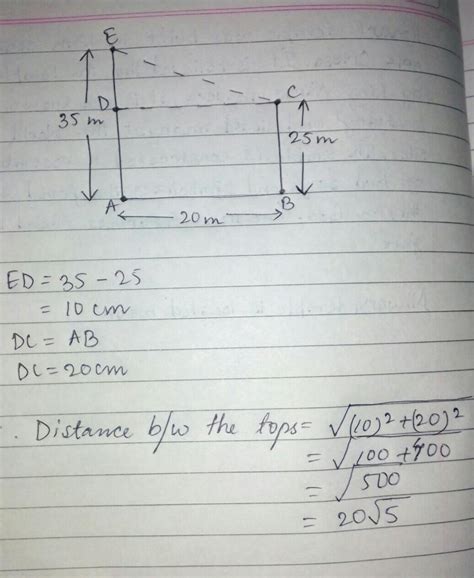 E
D
C
35 m
25m
A
B
20m
ED = 35 - 25
= 10 cm
DC = AB
DC = 20cm
. Distance b/w the tops = √(10)² + (20)²
= √100 + 400
= √500
= 20√5